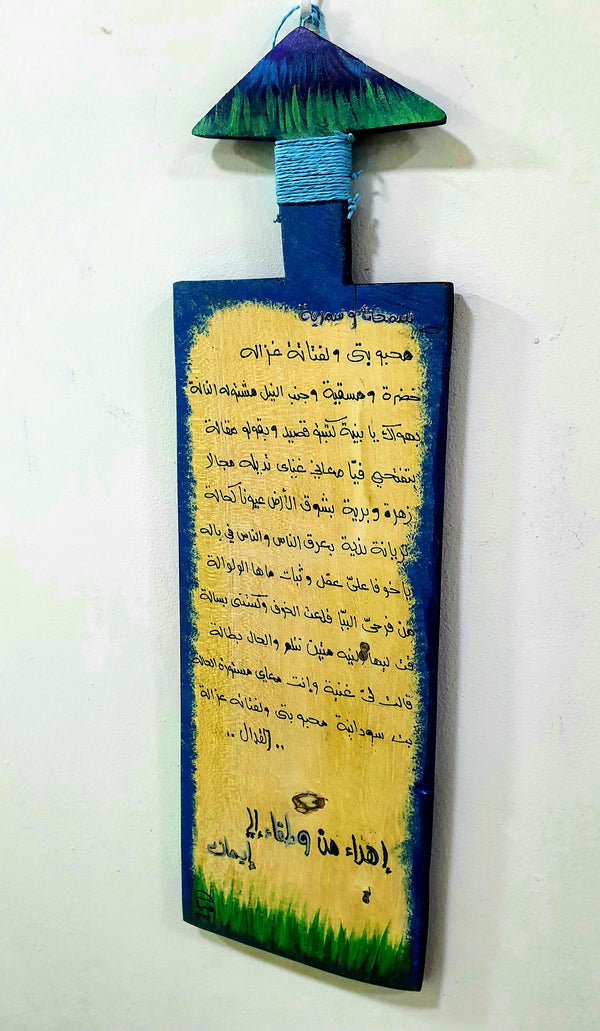 سمحة وسمرية
محبوبتى ولفتاتة غزاله
خضرة ومسقية وجنب النيل مشتوله التالة
بهواك يا بنية كتبتة قصيد وبقولو مقالة
بتفتحي فيّا صهاي غناى تديله مجالا
زهرة وبرية بشوق الأرض عيونا كحالة
كريانة ندية بعرق الناس والناس في باله
يا خوفا عليّ عقل وثبات ماها الولوالة
من فرحيّ البيّا قلعت الخوف وكستنى بسالة
قت ليها ولينه متين نتلم والحال بطالة
قالت ليّ غنية وانت معاي مستورة الحالة
بت سودانية محبوبتى ولفتاته غزالة
.. القدال ..
إهداء من ولقاء إلي
إيمان